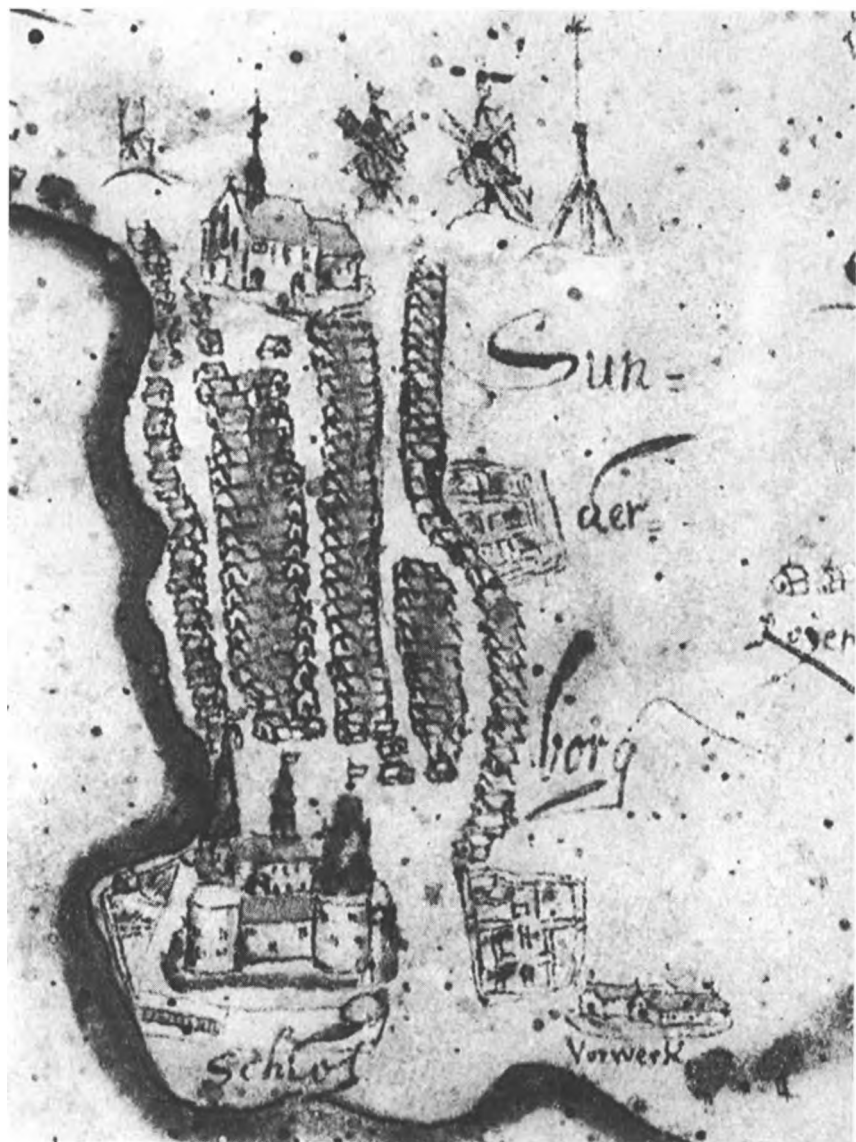 Sun=
der=
borg
Schlos
Vorwerk